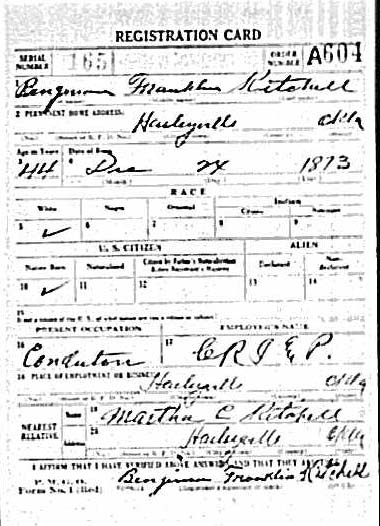 REGISTRATION CARD
SERIAL NUMBER 165 ORDER NUMBER A604
1 Benjimon Franklin Kitchell
2 PERMANENT HOME ADDRESS:
Haileyville Okla
Age in Years Date of Birth
3 44 4 Dec 24 1873
(Month) (Day) (Year)
RACE
White Negro Oriental Indian
Citizen Noncitizen
5 ✓ 6 7 8 9
U. S. CITIZEN ALIEN
Native Born Naturalized Citizen by Father's Naturalization Before Registrant's Majority Declarant Non-declarant
10 ✓ 11 12 13 14
15
If not a citizen of the U. S., of what nation are you a citizen or subject?
PRESENT OCCUPATION EMPLOYER'S NAME
16 Conductor 17 C R I & P.
18 PLACE OF EMPLOYMENT OR BUSINESS
Haileyville Okla
NEAREST RELATIVE Name 19 Martha C Kitchell
Address 20 Haileyville Okla
I AFFIRM THAT I HAVE VERIFIED ABOVE ANSWERS AND THAT THEY ARE TRUE
P. M. G. O.
Form No. 1 (Red) Benjimon Franklin Kitchell